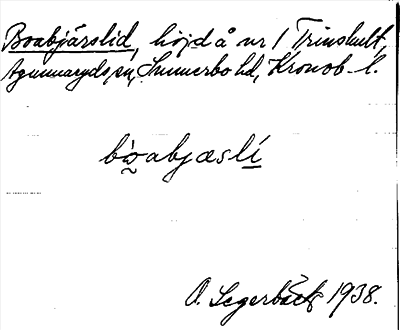 Boabjärslid, höjd å nr 1 Trinshult,
Agunnaryds sn, Sunnerbo hd, Kronob. l.
bòabjæslí
O. Segerbäck 1938.